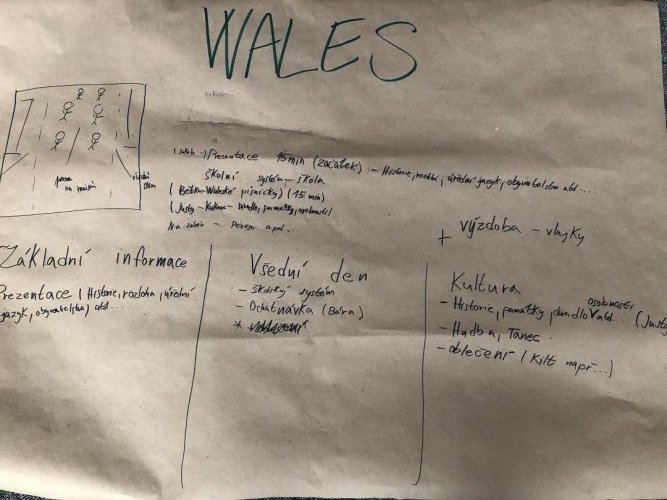 WALES
Prezentace 15min (začátek) - Historie, rozloha, úřední jazyk, obyvatelstvo atd...
školní systém - škola
(Bětka - Waleské písničky) (15 min)
(Justy - Kultura - divadlo, památky, osobnosti)
Na závěr -
+ výzdoba - vlajky
Základní informace
Prezentace (Historie, rozloha, úřední
jazyk, obyvatelstvo) atd...
Všední den
- školský systém
- Ochutnávka (Bára)
*
Kultura
- Historie, památky, divadlo osobnosti atd... (Justy
- Hudba, Tanec
- oblečení (Kilt např...)